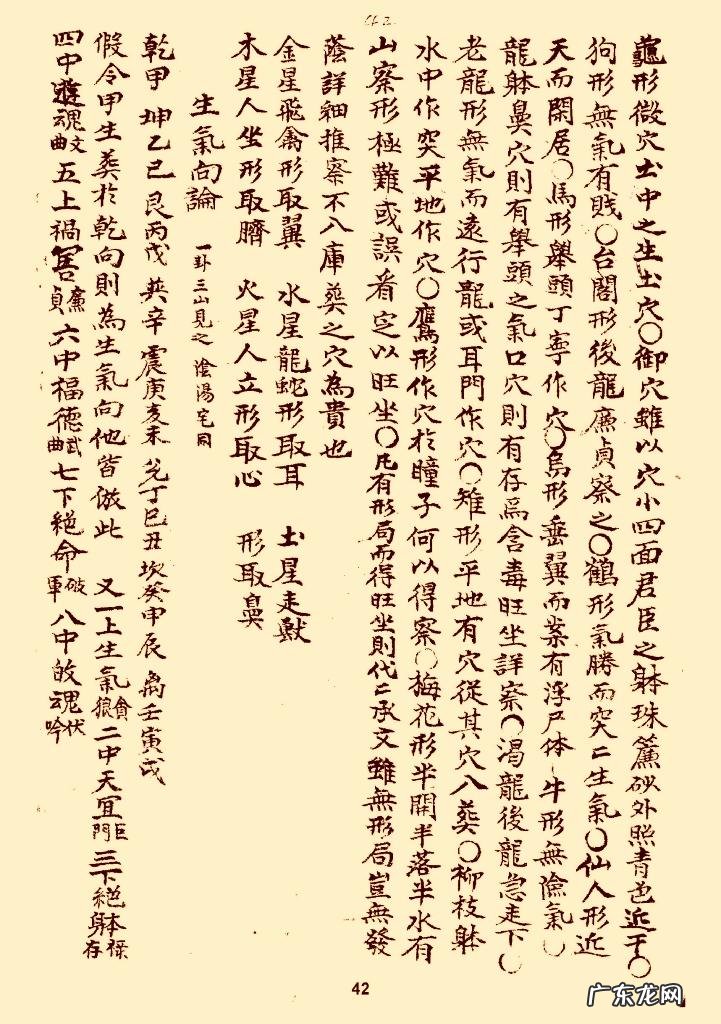 龜形微穴土中之生土穴〇御穴雖以穴小四面君臣之躰珠簾砂外照青邑近于〇
狗形無氣有賎〇台閣形後龍廉貞察之〇鶴形氣勝而突二生氣〇仙人形近
天而開居〇馬形舉頭丁寧作穴〇烏形垂翼而案有浮尸体、牛形無濂氣〇
龍躰鼻穴則有舉頭之氣口穴則有存焉含毒旺坐詳察〇渴龍後龍急走下〇
老龍形無氣而遠行龍或耳門作穴〇雉形平地有穴從其穴八葬〇柳枝躰
水中作突平地作穴〇鷹形作穴於瞳子何以得察〇梅花形半開半落半水有
山察形極難或誤看定以旺坐〇凡有形局而得旺坐則代二承文雖無形局豈無發
蔭詳細推察不入庫葬之穴為貴也
金星飛禽形取翼 水星龍蛇形取耳 土星走獸
木星人坐形取臍 火星人立形取心 形取鼻
生氣向論 一卦三山見之 陰陽宅同
乾甲 坤乙己 艮丙戊 巽辛 震庚亥未 兌丁巳丑 坎癸申辰 离壬寅戌
假令甲生葬於乾向則為生氣向他皆倣此 又一上生氣貪狼二中天宜巨門三下絕躰祿存
四中遊魂文曲 五上禍害廉貞 六中福德武曲 七下絕命破軍 八中敀魂伏吟
42
广东龙网